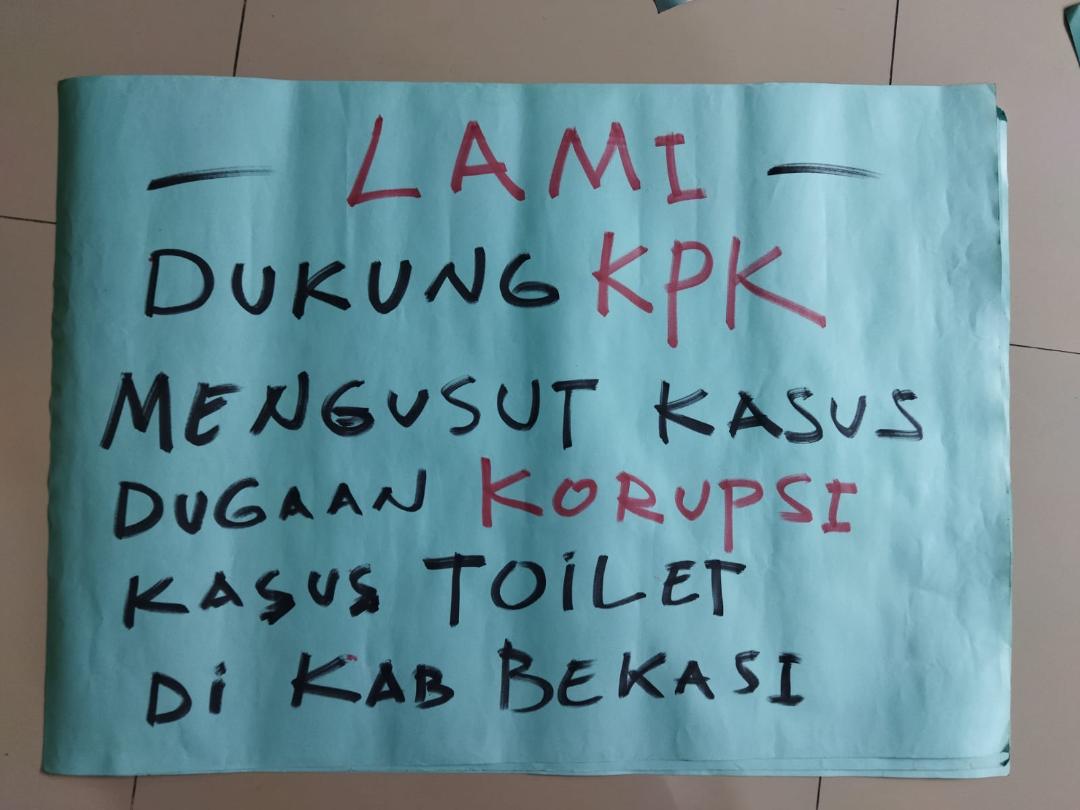 — LAMI —
DUKUNG KPK
MENGUSUT KASUS
DUGAAN KORUPSI
KASUS TOiLET
Di KAB BEKASI